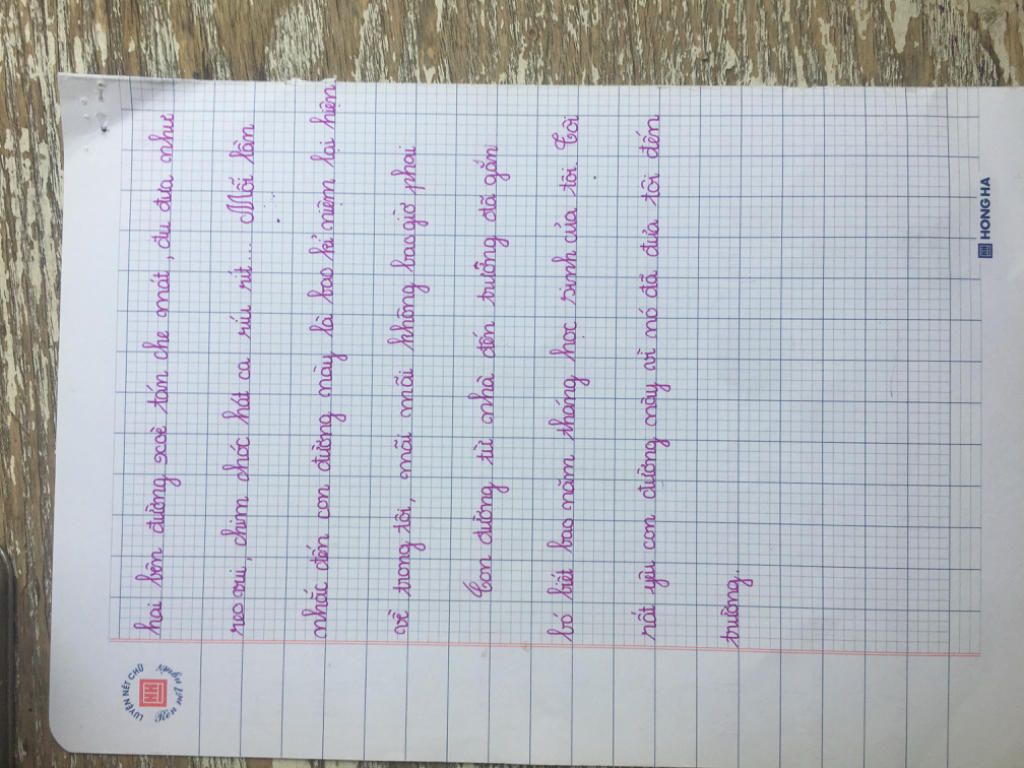 LUYỆN NÉT CHỮ
HH
hai bên đường xoè tán che mát, đu đưa như
reo vui, chim chóc hót ca ríu rít.... Mỗi lần
nhắc đến con đường này là bao kỉ niệm lại hiện
về trong tôi, mãi mãi không bao giờ phai
Con đường từ nhà đến trường đã gắn
bó biết bao năm tháng học sinh của tôi. Tôi
rất yêu con đường này vì nó đã đưa tôi đến
trường.
HONG HA